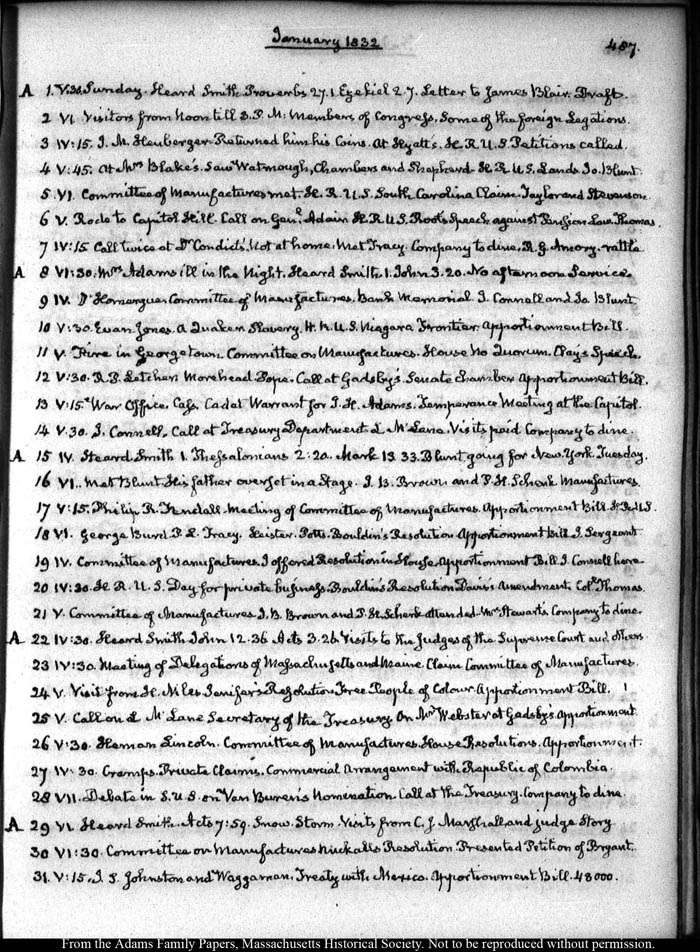 January 1832
487.
A 1. V:30. Sunday. Heard Smith Proverbs 27.1 Ezekiel 2.7. Letter to James Blair. Draft.
2 VI Visitors from Noon till 3. P.M: Members of Congress, Some of the foreign Legations.
3 IV:15. J. M. Heuberger Returned him his Coins. At Hyatt's. H. R. U. S. Petitions called.
4 V:45. At Mrs Blake's. Saw Watmough, Chambers and Shepherd. H. R. U. S. Lands Jo. Blunt.
5. VI. Committee of Manufactures met. H. R. U. S. South Carolina Claim. Taylor and Stevenson
6 V. Rode to Capitol Hill. Call on Genl. Adair H. R. U. S. Root's Speech against Pension Law. Thomas.
7 IV:15 Call twice at Dr Condict's. Not at home. Met Tracy. Company to dine. R. G. Amory. rattle
A 8 VI:30. Mrs Adams ill in the Night. Heard Smith. 1. John 3.20. No afternoon Service.
9 IV. D'Homergue. Committee of Manufactures. Bank Memorial J. Connell and Jo. Blunt
10 V:30. Evan Jones. a Quaker Slavery. H. R. U. S. Niagara Frontier. Apportionment Bill.
11 V. Fire in Georgetown. Committee on Manufactures. House No Quorum. Clay's Speech.
12 V:30. R. P. Letcher. Morehead Pope. Call at Gadsby's. Senate Chamber Apportionment Bill.
13 V:15. War Office. Cass. Cadet Warrant for J. H. Adams. Temperance Meeting at the Capitol.
14 V.30. J. Connell. Call at Treasury Department L. McLane. Visits paid Company to dine.
A 15 IV. Heard Smith 1. Thessalonians 2:20. Mark 13 33. Blunt going for New York. Tuesday.
16 VI.. Met Blunt His father overset in a Stage. J. B. Brown and P. H. Schenk Manufactures.
17 V:15. Philip R. Fendall. Meeting of Committee of Manufactures. Apportionment Bill H. R. U. S.
18 VI. George Burd P. L. Tracy. Leister. Potts. Bouldin's Resolution Apportionment Bill J. Sergeant
19 IV. Committee of Manufactures. I offered Resolution in House Apportionment Bill J. Connell here
20 IV:30. H. R. U. S. Day for private business Bouldin's Resolution Davis's Amendment. Coll. Thomas.
21 V. Committee of Manufactures J. B. Brown and P. H. Schenk attended Mrs Stewart's Company to dine.
A 22 IV:30. Heard Smith John 12.36 Acts 3.26 Visits to the Judges of the Supreme Court and others
23 IV:30. Meeting of Delegations of Massachusetts and Maine. Claim Committee of Manufactures.
24 V. Visit from H. Niles Jenifer's Resolution Free People of Colour. Apportionment Bill.
25 V. Call on L McLane Secretary of the Treasury. On Mr Webster at Gadsby's. Apportionment
26 V:30. Heman Lincoln. Committee of Manufactures. House Resolutions. Apportionment.
27 IV:30. Cramps. Private Claims. Commercial arrangement with Republic of Colombia.
28 VII. Debate in S. U. S. on Van Buren's Nomination Call at the Treasury. Company to dine.
A 29 VI Heard Smith. Acts 7:59. Snow Storm Visits from C. J. Marshall and judge Story
30 VI:30. Committee on Manufactures Nuckolls Resolution Presented Petition of Bryant.
31. V:15. J. S. Johnston and Waggaman. Treaty with Mexico. Apportionment Bill. 48000.
From the Adams Family Papers, Massachusetts Historical Society. Not to be reproduced without permission.